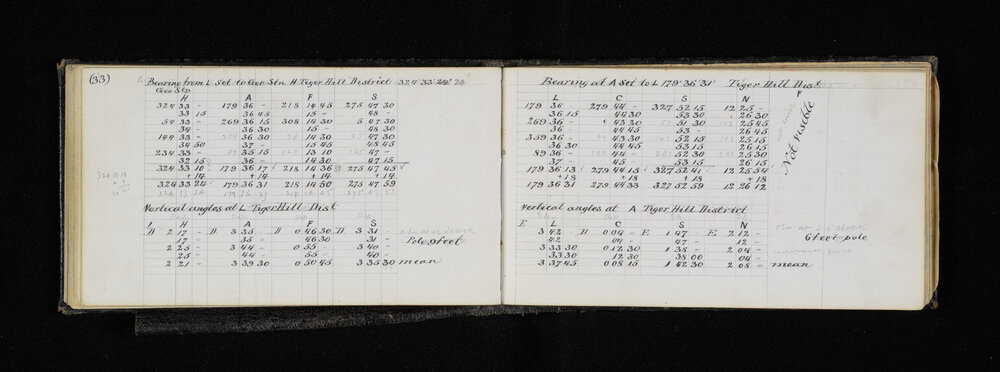 (33)
Bearing from L Set to Geo Stn H Tiger Hill District 324° 33' 24"
Geo Stn
H A F S
324 33 - 179 36 - 218 14 45 275 47 30
33 15 36 45 15 - 48 -
54 33 - 269 36 15 308 14 30 5 47 30
34 - 36 30 15 - 48 30
144 33 - 36 30 14 30 47 30
34 50 37 - 15 45 48 45
234 33 - 35 15 13 10 47 -
32 15 36 - 14 30 47 15
324 33 10 179 36 17 218 14 36 275 47 45
+14 +14 +14 +14
324 33 24 179 36 31 218 14 50 275 47 59
Vertical angles at L Tiger Hill Dist
H A F S
D 2 17 - D 3 35 - D 0 46 30 D 3 31 -
17 - 35 - 46 30 31 - Pole, steel
2 25 - 3 44 - 0 55 - 3 40 -
25 - 44 - 55 - 40 -
2 21 - 3 39 30 0 50 45 3 35 30 mean
Bearing at A Set to L 179° 36' 31" Tiger Hill Dist
L C S N
179 36 - 279 44 - 327 52 15 12 25 -
36 15 44 30 53 30 26 30
269 36 - 43 30 51 30 25 45
36 - 44 45 53 - 26 45
359 36 - 43 30 52 15 25 15
36 - 44 45 53 15 26 15
89 36 - 44 - 52 30 25 30
37 - 45 - 53 15 26 15
179 36 13 279 44 15 327 52 41 12 25 54
+18 +18 +18 +18
179 36 31 279 44 33 327 52 59 12 26 12
Not visible
Vertical angles at A Tiger Hill District
L C S N
E 3 42 - D 0 04 - E 1 47 - E 2 12 -
42 - 04 - 47 - 12 - Steel pole
3 33 30 0 12 30 1 38 - 2 04 -
33 30 12 30 38 00 04 -
3 37 45 0 08 15 1 42 30 2 08 - mean